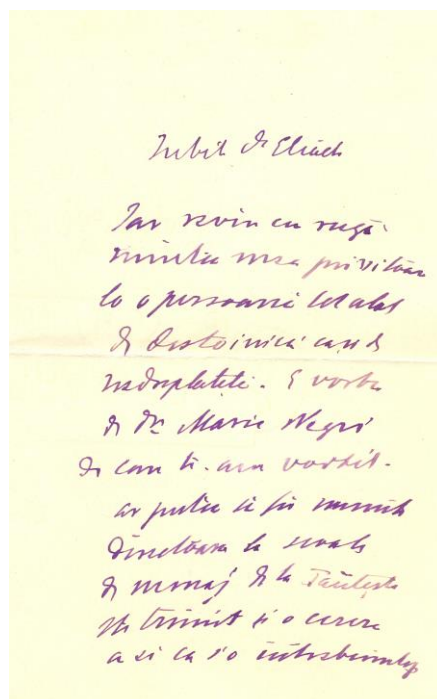 Iubite Dle Eliade
Iar revin cu rugă
mintea mea privitoare
la o persoană tot atat
de destoinică cat si
nedreptatită. E vorba
de Dna Maria Negri
de care ti-am vorbit.
ar putea să fie numită
directoara la scoala
de menaj de la
iti trimit si o cerere
a ei ca s'o